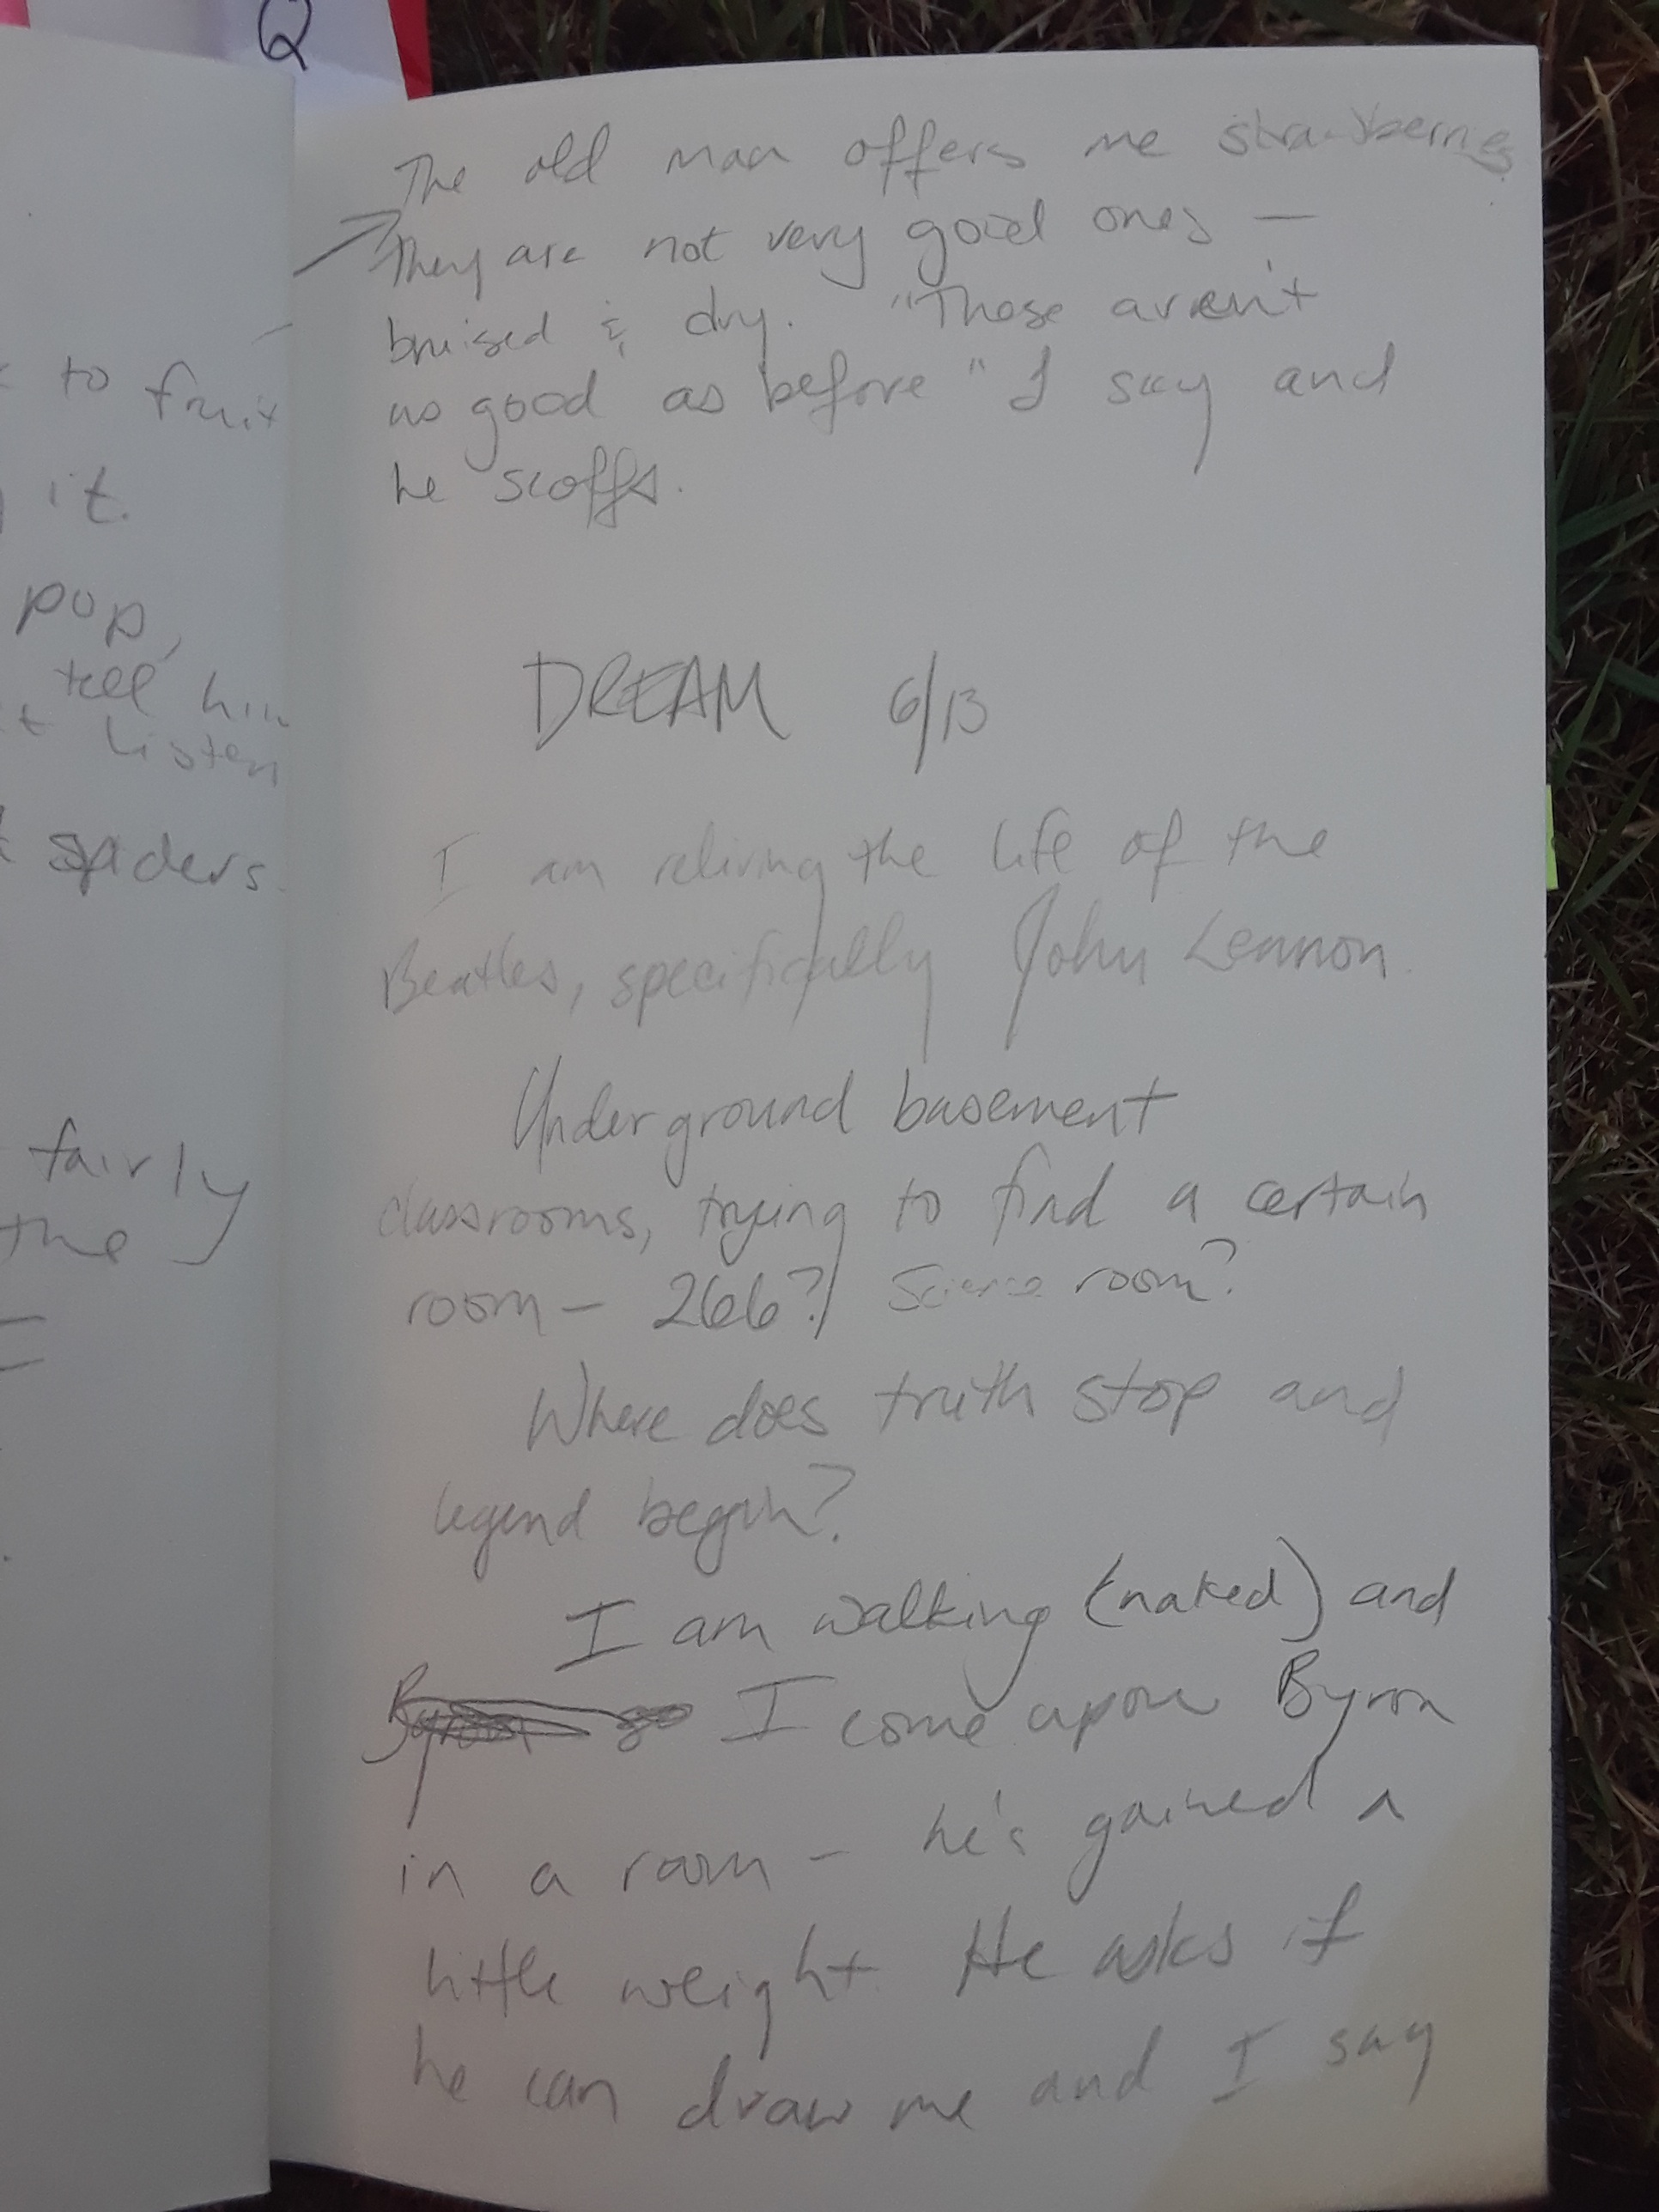 Q
to fruit
it.
pop,
tell him
listen
spiders.
fairly
the
The old man offers me strawberries
They are not very good ones —
bruised & dry. "These aren't
as good as before" I say and
he scoffs.
DREAM 6/13
I am reliving the life of the
Beatles, specifically John Lennon
Underground basement
classrooms, trying to find a certain
room — 266?/ Science room?
Where does truth stop and
legend begin?
I am walking (naked) and
I come upon Byron
in a room — he's gained a
little weight. He asks if
he can draw me and I say